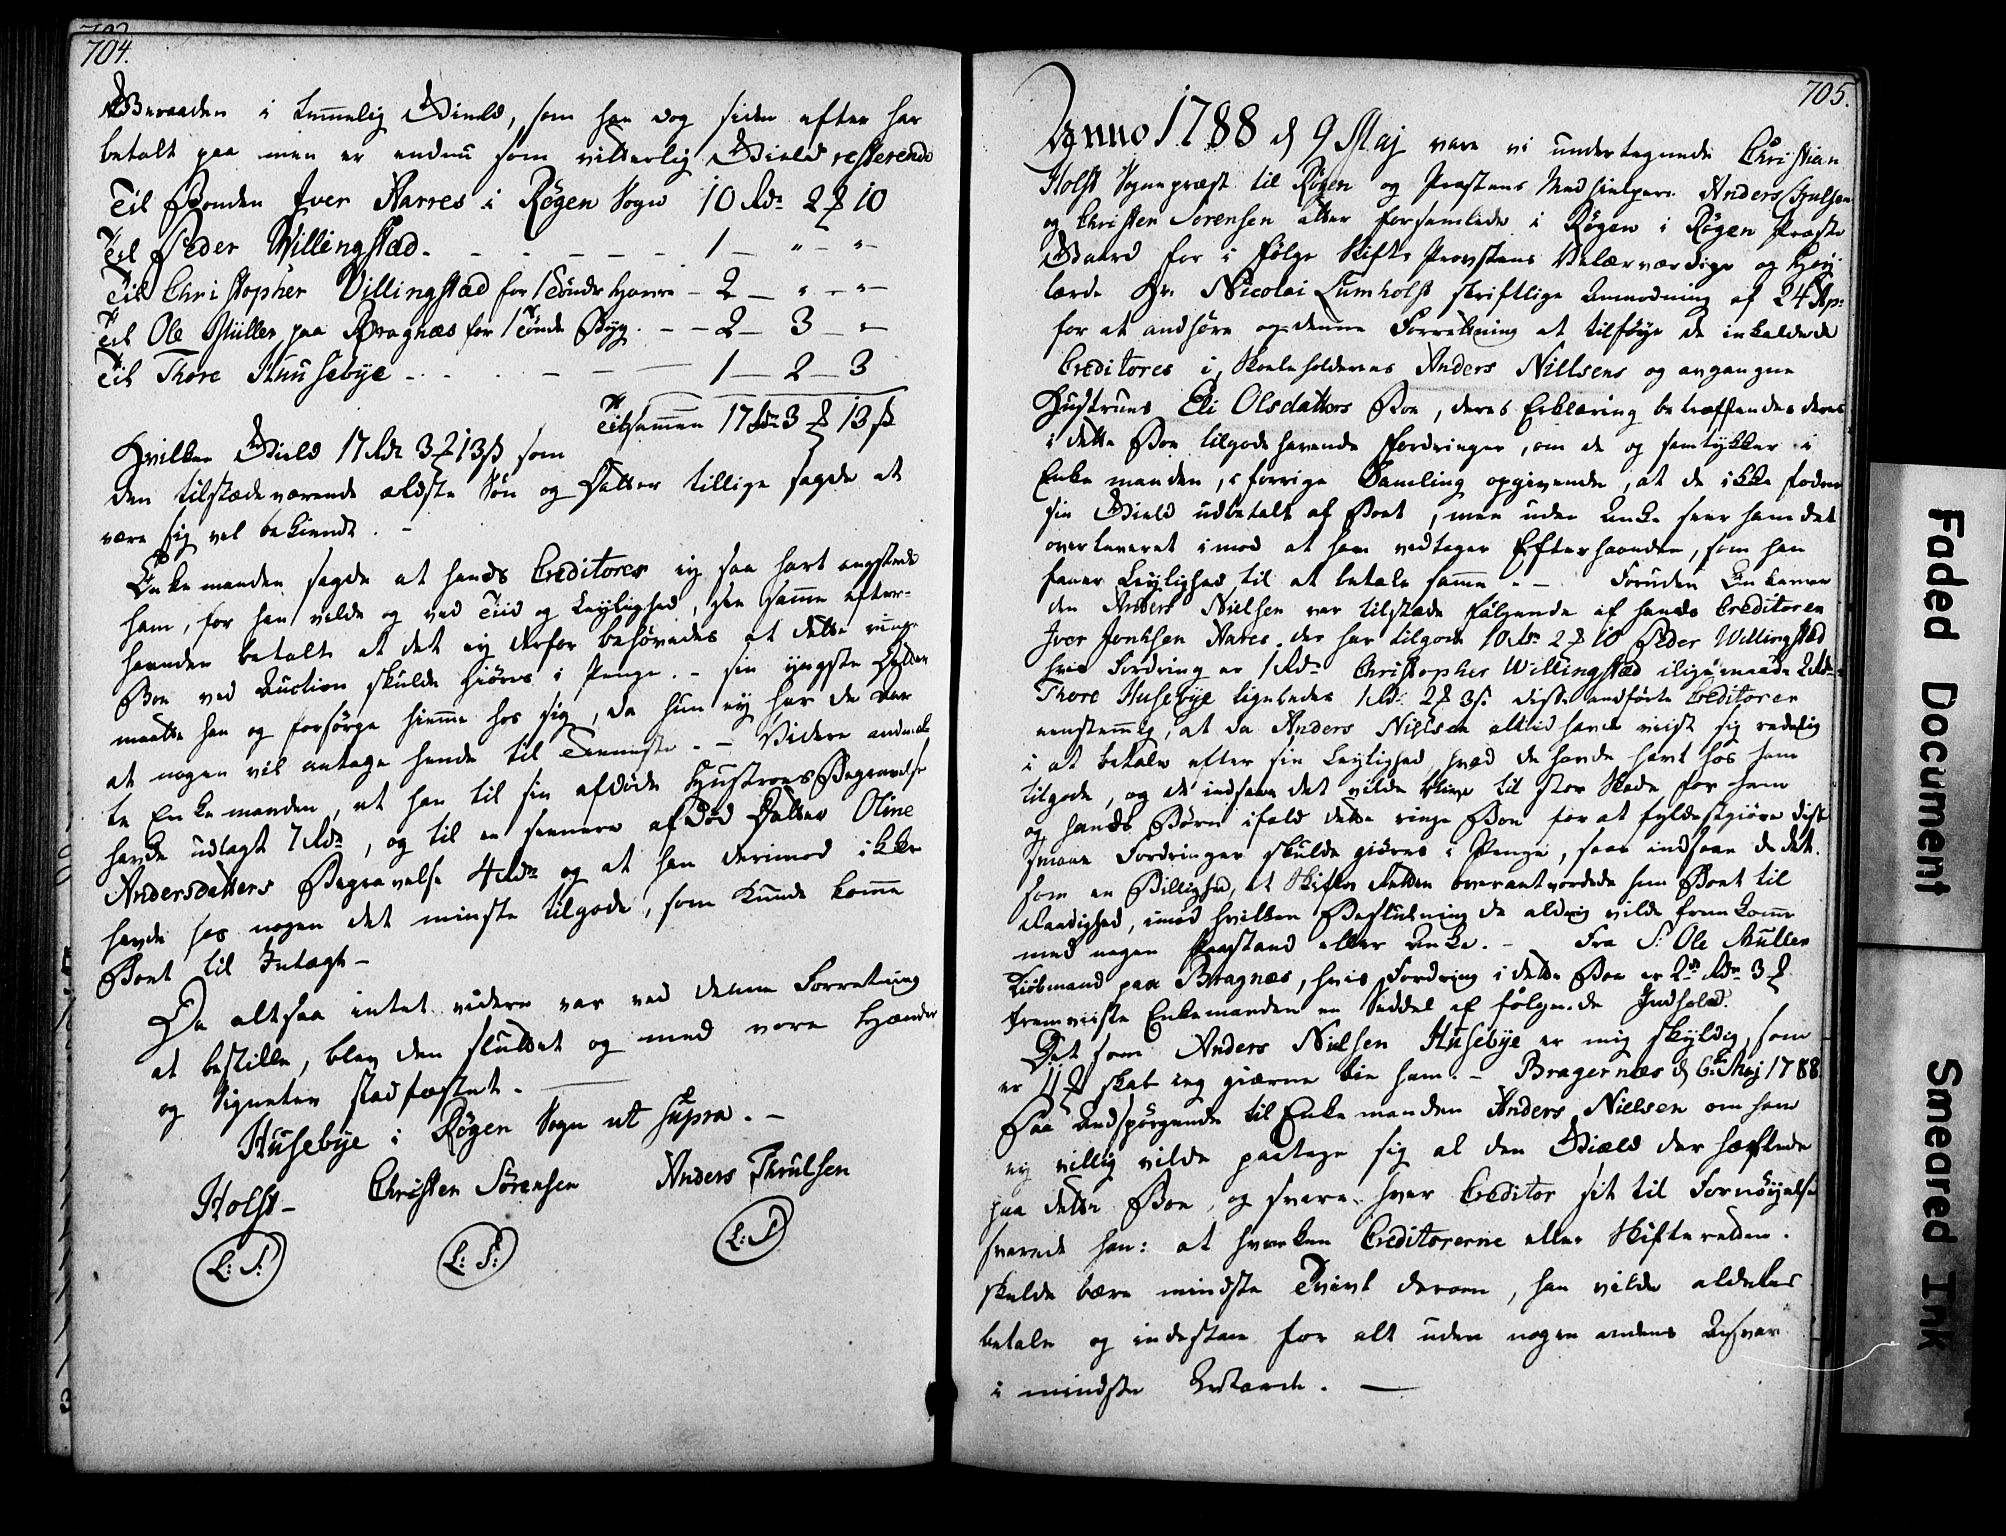 704.
Beraaden i temmelig Gield, som han dog siden efter har
betalt paa men er endnu som vitterlig Gield resterende
Til Bonden Iver Narres i Røgen Sogn 10 Rdr 2 ƶ 10
Til Peder Willingstad. - - - - - 1 — " - "
Til Christopher Villingstad for 1 Tønde Havre - 2 — " - "
Til Ole Müller paa Bragnæs for 1 Tønde Byg. - - 2 — 3 — "
Til Thore Huusebye - - - - 1 — 2 — 3
Tilsamen 17 Rdr 3 ƶ 13 ß
Hvilken Gield 17 Rdr 3 ƶ 13 ß som
den tilstædeværende ældste Søn og Datter tillige sagde at
være sig vel bekiendt. -
Enkemanden sagde at hands Creditores ej saa hart engstede
ham, for han vilde og ved Tiid og Leylighed, dem samme efter-
haanden betalt at det ej derfor behøvedes at dette ringe
Boe ved Auction skulde giøres i Penge. - sin yngste Datter
maatte han og forsørge hiemme hos sig, da hun ej har de
at nogen vil antage hende til Tienneste. - Videre anmeld-
te Enkemanden, at han til sin afdøde Hustroes Begravelse
havde udlagt 7 Rdr, og til en sennere afdød Datter Oline
Andersdatters Begravelse 4 Rdr og at han derimod ikke
havde hos nogen det mindste tilgode, som kunde komme
Boet til Indtægt -
Da altsaa intet videre var ved denne Forretning
at bestille, blev den sluttet og med vore Hænder
og Signeter stadfæstet. -
Husebye i Røgen Sogn ut supra. -
Holst - Christen Sørensen Anders Thrulsen
L: S: L: S: L: S:
705.
Anno 1788 d 9 Maj vare vi undertegnede Christian
Holst Sognepræst til Røgen og Præstens Medhielpere Anders Thrulsen
og Christen Sørensen atter forsamlede i Røgen i Røgen Præste
Gaard for i følge Skifte Provstens Velærværdige og Høj
lærde Hr. Nicolai Lumholst skriftlige Anmodning af 24 Apr:
for at anhøre og denne Forretning at tilføye de inkaldede
Creditores i, Skoleholderens Anders Nielsens og avgangne
Hustrues Eli Olsdatters Boe, deres Erklæring betræffende deres
i dette Boe tilgodehavende Fordringer, om de og samtykker i
Enkemanden, i forrige Samling opgivende, at de ikke fodrer
sin Gield udbetalt af Boet, men uden Anke seer ham det
overleveret imod at han vedtager Efterhaanden, som han
faaer Leylighed til at betale samme. - Foruden Enkeman
den Anders Nielsen var tilstæde følgende af hands Creditorer
Iver Jonsen Nares, der har tilgode 10 Rdr 2 ƶ 10 Peder Willingstad
hvis Fordring er 1 Rdr Christopher Willingstad i ligemaade 2 Rdr
Thore Husebye ligeledes 1 Rd: 2 ƶ 3 ß. disse anførte Creditorer
eenstemmig, at da Anders Nielsen altid havde viist sig redelig
i at betale efter sin Leylighed, hvad de havde havt hos ham
tilgode, og de indsaae det vilde blive til stor Skade for ham
og hands Børn ifald dette ringe Boe for at fyldestgiøre disse
smaae Fordringer skulde giøres i Penge, saa indsaae de det
som en Billighed, at Skifte Retten overantvordede ham Boet til
Raadighed, imod hvilken Beslutning de aldrig vilde fremkomme
med nogen Paastand eller Anke. - Fra S: Ole Muller
Kiøbmand paa Bragnæs, hvis Fordring i dette Boe er 2 Rdr 3 ƶ
fremviiste Enkemanden en Seddel af følgende Indhold:
Det som Anders Nielsen Husebye er mig skyldig, som
er 11 ƶ skal jeg gierne bie ham. - Bragernæs d 6te Maj 1788
Paa Andspørgende til Enkemanden Anders Nielsen om han
ej villig vilde paatage sig al den Giæld der hæftede
paa dette Boe, og svare hver Creditor sit til Fornøyelse
svarede han: at hverken Creditorerne eller Skifteretten
skulde bære mindste Tvivl derom, han vilde aldeles
betale og indestaae for alt uden nogen andens Ansvar
i mindste Maade. —
Faded Document
Smeared Ink